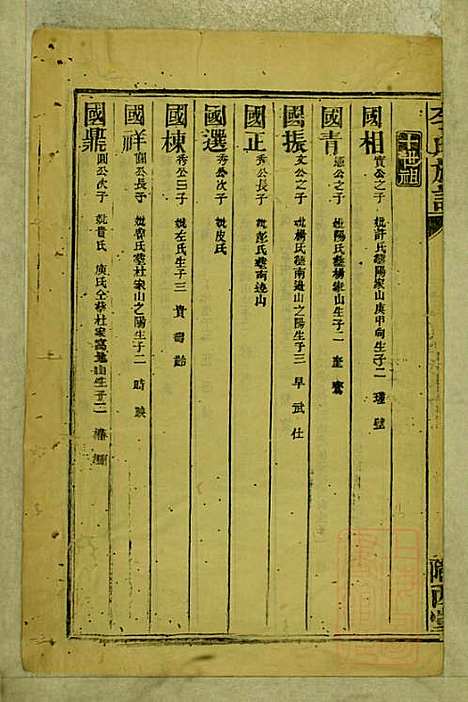 李氏族譜
十世祖
國相 實公之子 妣許氏葬陽家山庚甲向生子二 瑾 璧
國青 憲公之子 妣陽氏葬楊家山生子二 奎
國振 文公之子 妣楊氏葬南邊山之陽生子三 早 武 仕
國正 秀公長子 妣彭氏葬南邊山
國選 秀公次子 妣皮氏
國棟 秀公三子 妣左氏生子三 貴
國祥 圓公長子 妣曾氏葬杜家山之陽生子二 時 映
國鼎 圓公次子 妣貴氏 庾氏仝葬杜家窩 山生子二
隴西堂